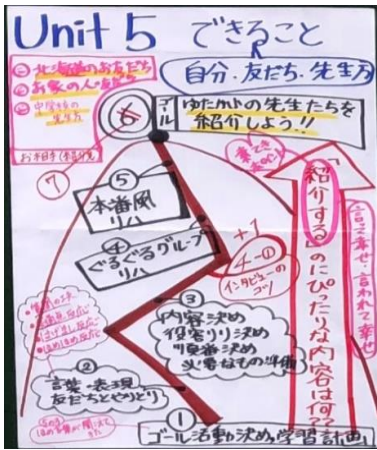 Unit 5 できること
自分・友だち・先生方
北海道のお友だち
お家の人・友だち
中学校の
先生方
お手本(紹介文)
⑦
⑥
ゴール
ゆたかの先生たちを
紹介しよう!!
⑤
本番風
リハ
④
ぐるぐるグループ
リハ
+1
④-①
インタビューの
コツ
③
内容決め
役割わり決め
順番決め
必要なもの準備
②
言葉・表現
友だちとやりとり
①
ゴール活動決め,学習計画
「紹介する」のにぴったりな内容は何??
言って幸せ・言われて幸せ